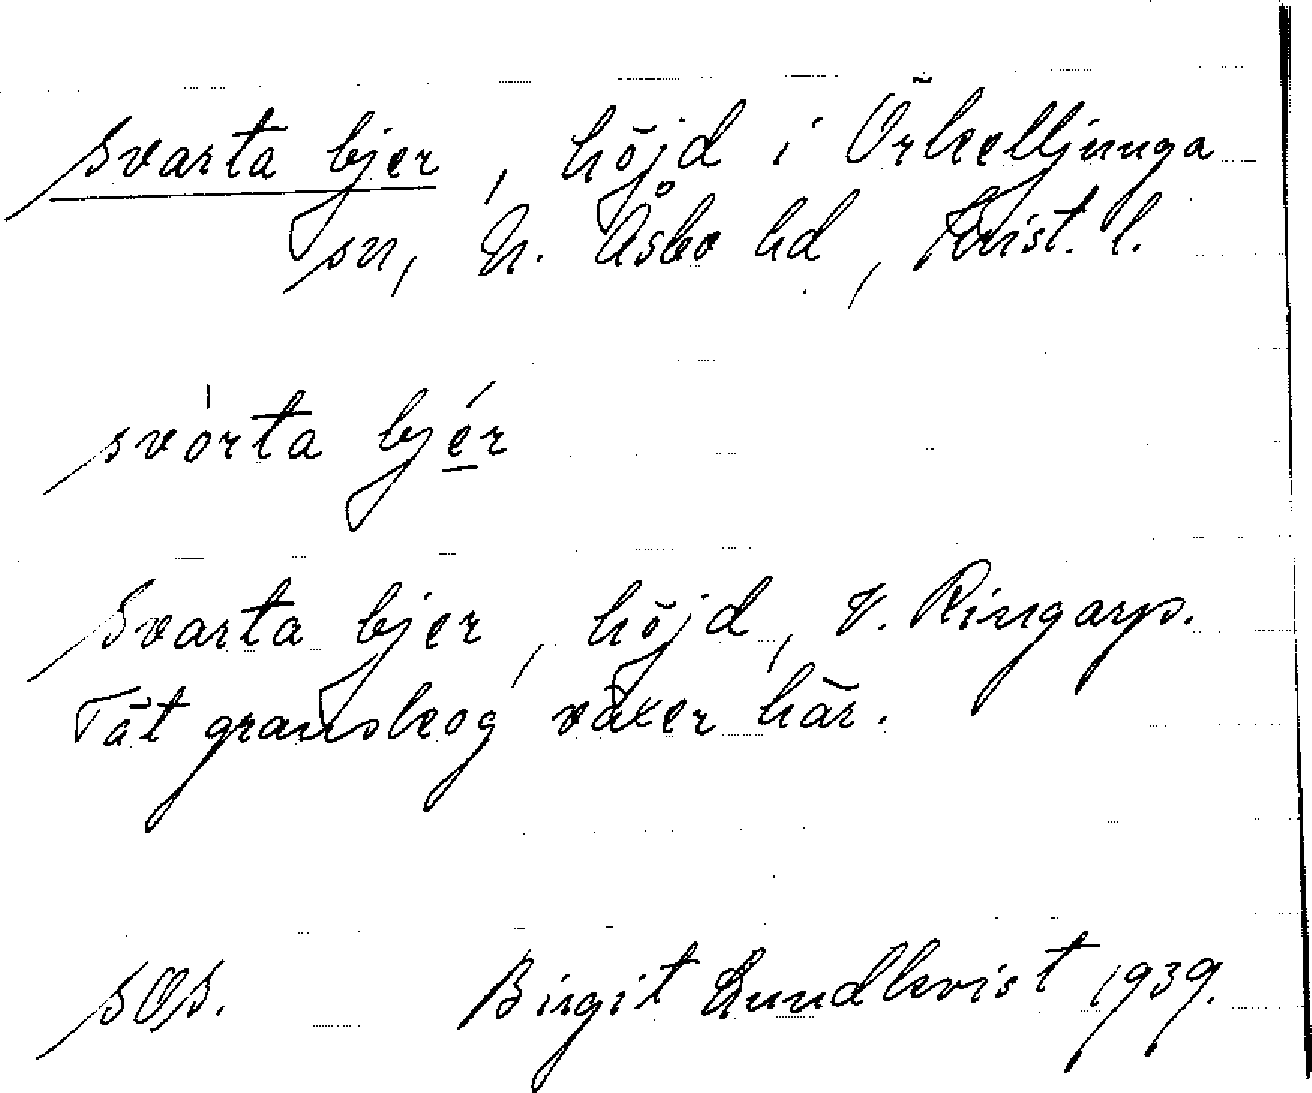 Svarta bjer, höjd i Örkelljunga
sn, N. Åsbo hd, Krist. l.
svórta bjér
Svarta bjer, höjd, V. Ringarp.
Tät granskog växer här.
SOS. Birgit Lundkvist 1939.